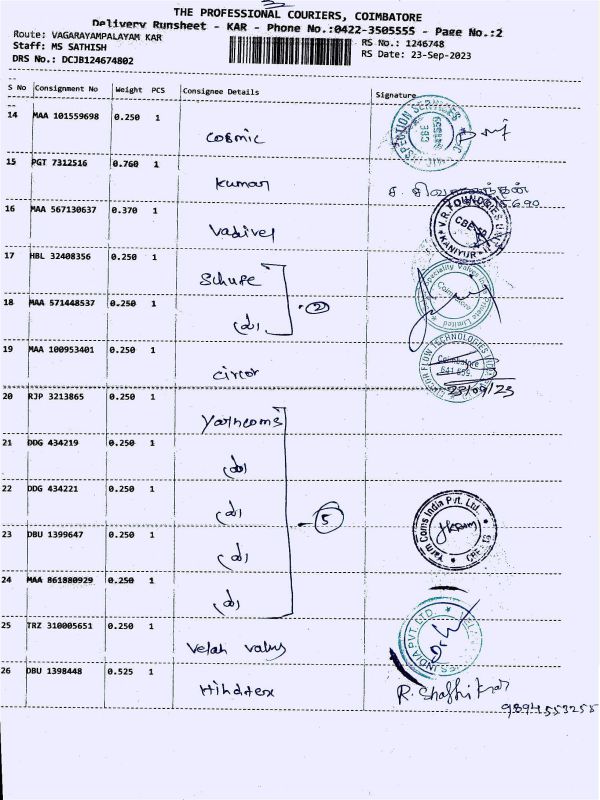 THE PROFESSIONAL COURIERS, COIMBATORE
Delivery Runsheet - KAR - Phone No.:0422-3505555 - Page No.:2
Route: VAGARAYAMPALAYAM KAR
RS No.: 1246748
Staff: MS SATHISH
RS Date: 23-Sep-2023
DRS No.: DCJB124674802
S No Consignment No Weight PCS Consignee Details Signature
14 MAA 101559698 0.250 1
Cosmic
15 PGT 7312516 0.760 1
Kumar
16 MAA 567130637 0.370 1
Vadivel
V.R. FOUNDRIES
CBE-59
KANIYUR
17 HBL 32408356 0.250 1
Schufe
Coimbatore
Private Limited
18 MAA 571448537 0.250 1
2
19 MAA 100953401 0.250 1
Circor
CIRCOR FLOW TECHNOLOGIES
Coimbatore
23/09/23
20 RJP 3213865 0.250 1
Yarncoms
21 DDG 434219 0.250 1
22 DDG 434221 0.250 1
5
Yarn Coms India Pvt. Ltd.
23 DBU 1399647 0.250 1
24 MAA 861880929 0.250 1
25 TRZ 310005651 0.250 1
Velan
INDIA PVT. LTD.
26 DBU 1398448 0.525 1
Hindtex
9894553255